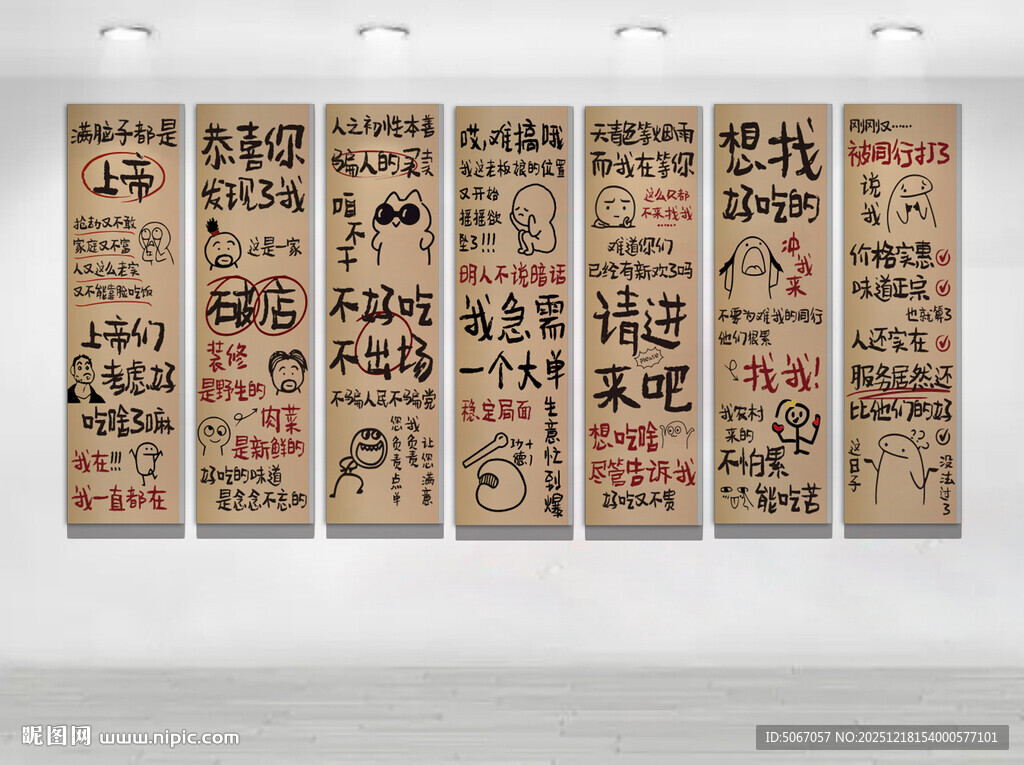 满脑子都是
上帝
抢劫又不敢
家庭又不富
人又这么老实
又不能靠脸吃饭
上帝们
考虑好
吃啥了嘛
我在!!!
我一直都在
恭喜你
发现了我
这是一家
破店
装修
是野生的
肉菜
是新鲜的
好吃的味道
是念念不忘的
人之初性本善
骗人的买卖
咱不干
不好吃
不出场
不骗人民不骗党
您负责点单
我负责
让您满意
哎,难搞哦
我这老板娘的位置
又开始
摇摇欲
坠了!!!
明人不说暗话
我急需
一个大单
稳定局面
生意忙到爆
天青色等烟雨
而我在等你
这么久都
不来找我
......
难道你们
已经有新欢了吗
请进
please
来吧
想吃啥
尽管告诉我
好吃又不贵
想找
好吃的
冲我来
不要为难我的同行
他们很累
找我!
我农村
来的
不怕累
能吃苦
刚刚又......
被同行打了
说我
价格实惠
味道正宗
也就算了
人还实在
服务居然还
比他们的好
这日子
没法过了
昵图网 www.nipic.com
ID:5067057 NO:20251218154000577101